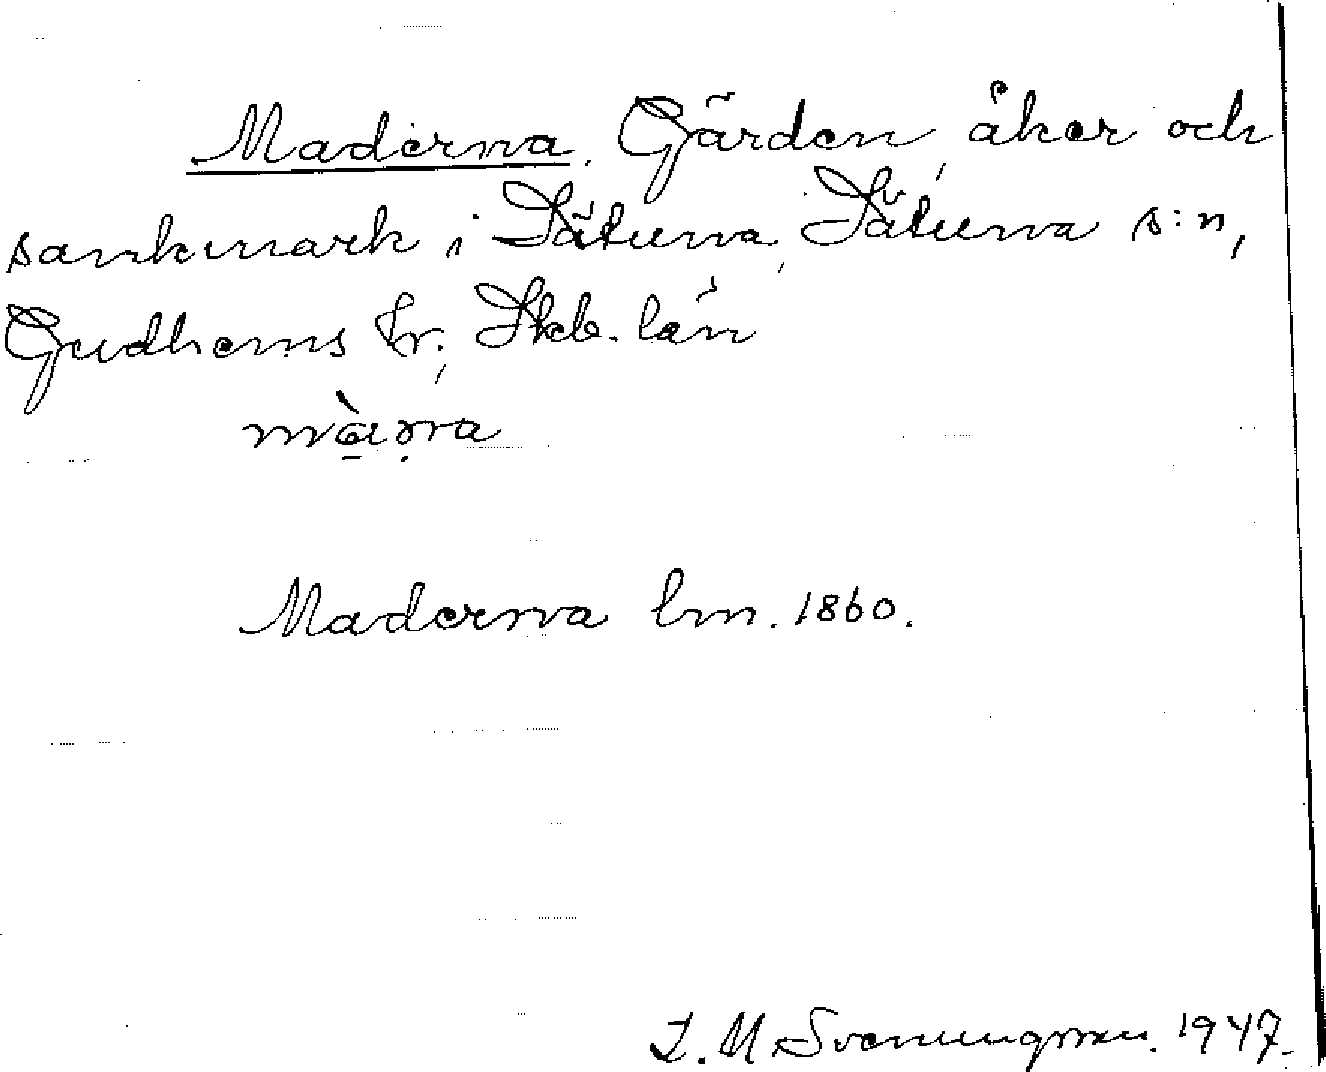 Maderna. Gärden, åker och
sankmark i Sätuna, Sätuna s:n,
Gudhems hr, Skb. län
Maderna lm. 1860.
Svenungsson. 1947.